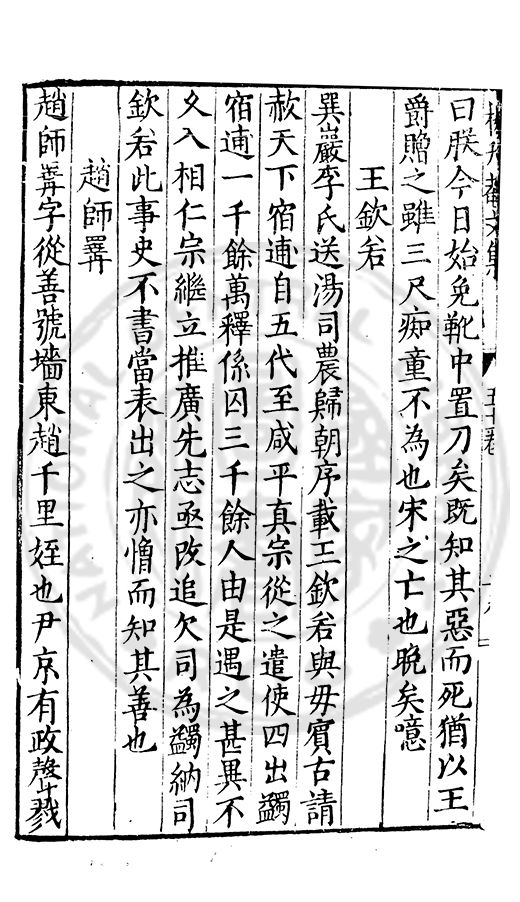 曰朕今日始免靴中置刀矣既知其惡而死猶以王
爵贈之雖三尺痴童不為也宋之亡也晚矣噫
王欽若
巽巖李氏送湯司農歸朝序載王欽若與毋賓古請
赦天下宿逋自五代至咸平真宗從之遣使四出蠲
宿逋一千餘萬釋係囚三千餘人由是遇之甚異不
久入相仁宗繼立推廣先志亟改追欠司為蠲納司
欽若此事史不書當表出之亦憎而知其善也
趙師𢍰
趙師𢍰字從善號墻東趙千里姪也尹京有政聲戮